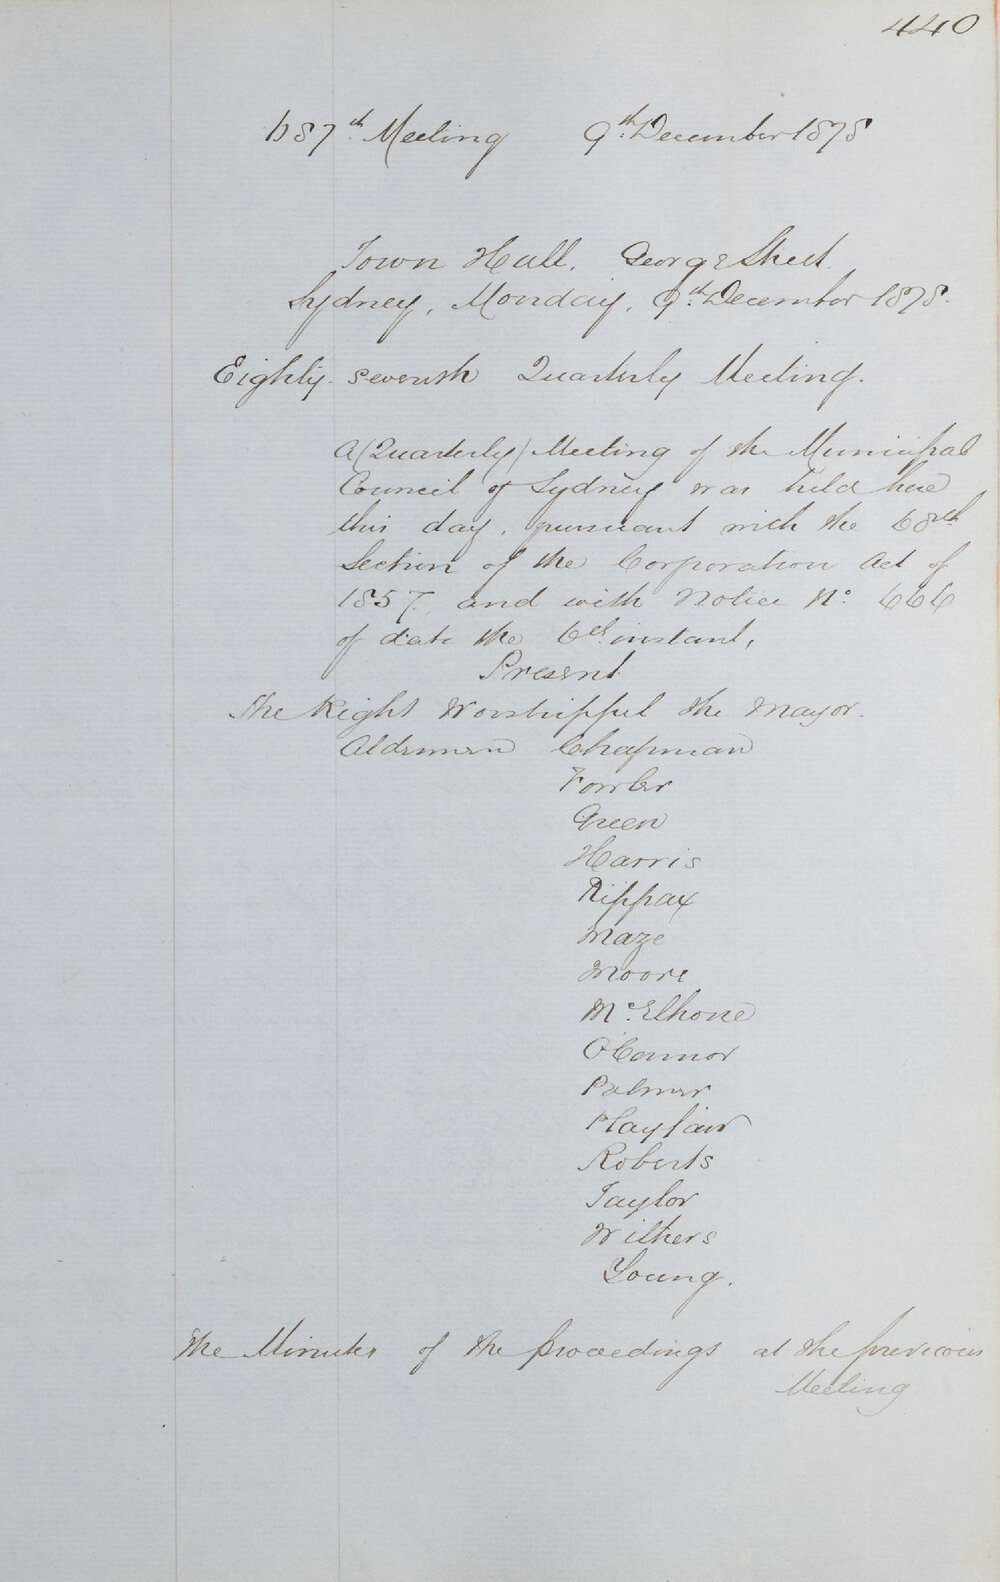 440
1587th Meeting 9th December 1878
Town Hall, George Street.
Sydney, Monday, 9th December 1878.
Eighty-seventh Quarterly Meeting.
A (Quarterly) Meeting of the Municipal
Council of Sydney was held here
this day, pursuant with the 68th
Section of the Corporation Act of
1857, and with Notice No. 666
of date the 6th instant,
Present
The Right Worshipful the Mayor.
Aldermen Chapman
Fowler
Green
Harris
Kippax
Maze
Moore
McElhone
O'Connor
Palmer
Playfair
Roberts
Taylor
Withers
Young.
The Minutes of the proceedings at the previous
Meeting